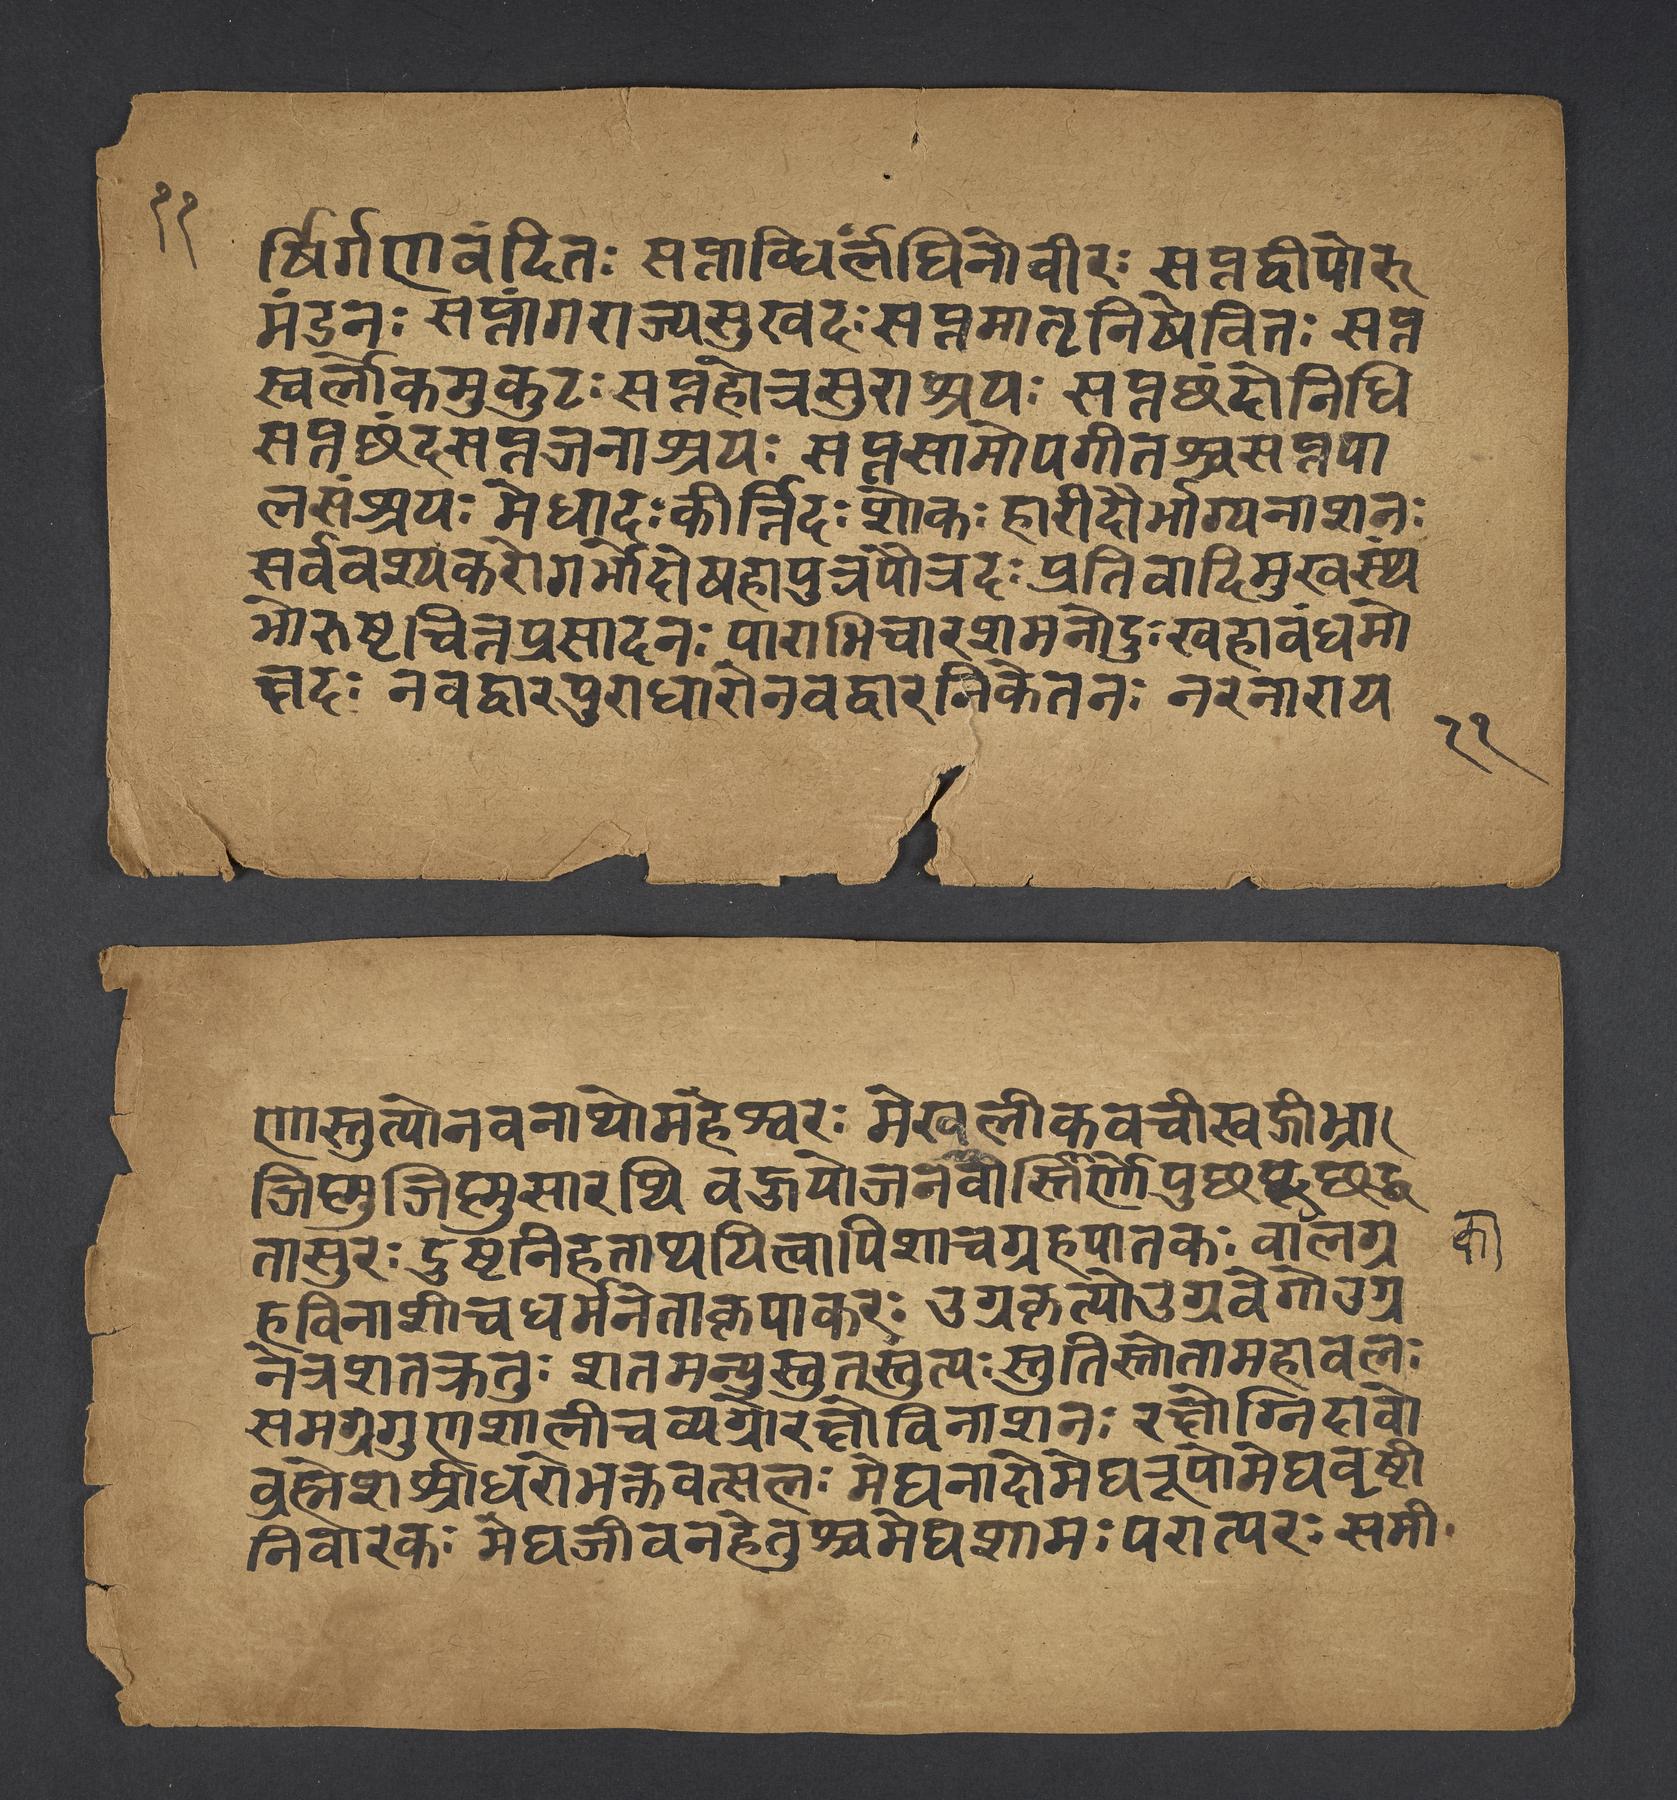 ११
र्षिर्गणवंदितः सप्ताब्धिर्लंघिनोवीरः सप्तद्वीपोरु
मंडनः सप्तांगराज्यसुखदः सप्तमातृनिषेवितः सप्त
स्वर्लोकमुकुटः सप्तंहोत्रसुराश्रयः सप्तछंदोनिधि
सप्तछंदसप्तजनाश्रयः सप्तसामोपगीतश्चसप्तपा
लसंश्रयः मेधादः कीर्त्तिदः शोकः हारीदौर्भाग्यनाशनः
सर्ववश्यकरोगर्भोदोषहापुत्रंपौत्रदः प्रतिवादिमुखस्तं
भोरुष्टचित्तप्रसादनः पाराभिचारशमनोदुःखहावंधमो
क्षदः नवद्वारपुराधारोनवद्वारनिकेतनः नरनाराय
११
णस्तुत्योनवनाथोमहेश्वरः मेखलीकवचीखड्गीभ्रा
जिष्णुजिष्णुसारथि वहुयोजनवीस्तीर्णोपुछपुछह
तासुरः दुष्टनिहताथयित्वापिशाचग्रहपातकः वालग्र
का
हविनाशीचधर्मनेताकृपाकरः उग्रकृत्योउग्रवेगोउग्र
नेत्रशतक्रतुः शतमन्युस्तुतस्तुत्यः स्तुतिस्तोतामहावलः
समग्रगुणशालीचव्यग्रोरक्षोविनाशनः रक्षोग्निदावो
व्रह्मेशश्रीधरोभक्तवत्सलः मेघनादोमेघरूपोमेघवृष्टी
निवारकः मेघजीवनहेतुश्चमेघशामः परात्परः समी